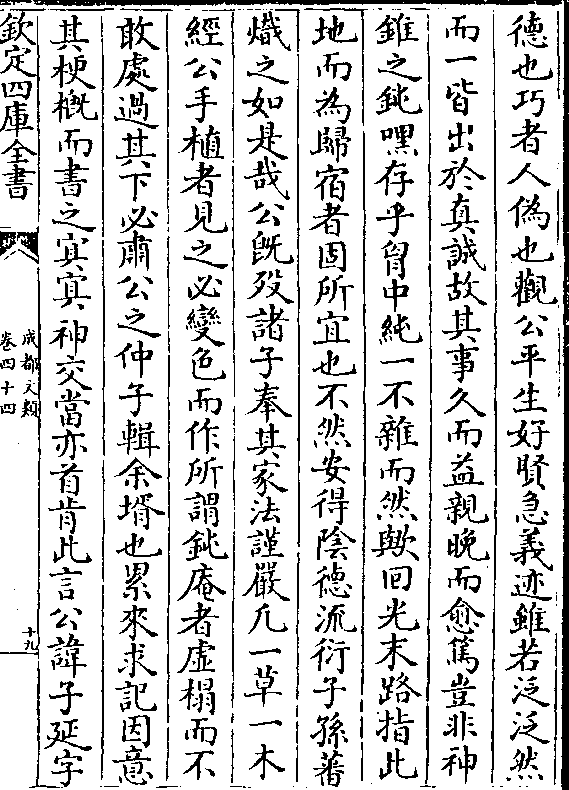 德也巧者人偽也觀公平生好賢急義迹雖若泛泛然
而一皆出於真誠故其事久而益親晚而愈篤豈非神
錐之鈍嘿存乎胷中純一不雜而然歟回光末路指此
地而為歸宿者固所宜也不然安得隂德流衍子孫蕃
熾之如是哉公旣殁諸子奉其家法謹嚴凡一草一木
經公手植者見之必變色而作所謂鈍庵者虚榻而不
敢處過其下必肅公之仲子輯余壻也累來求記因意
其梗槩而書之寞寞神交當亦首肯此言公諱子延字
欽定四庫全書
成都文類
卷四十四
十九